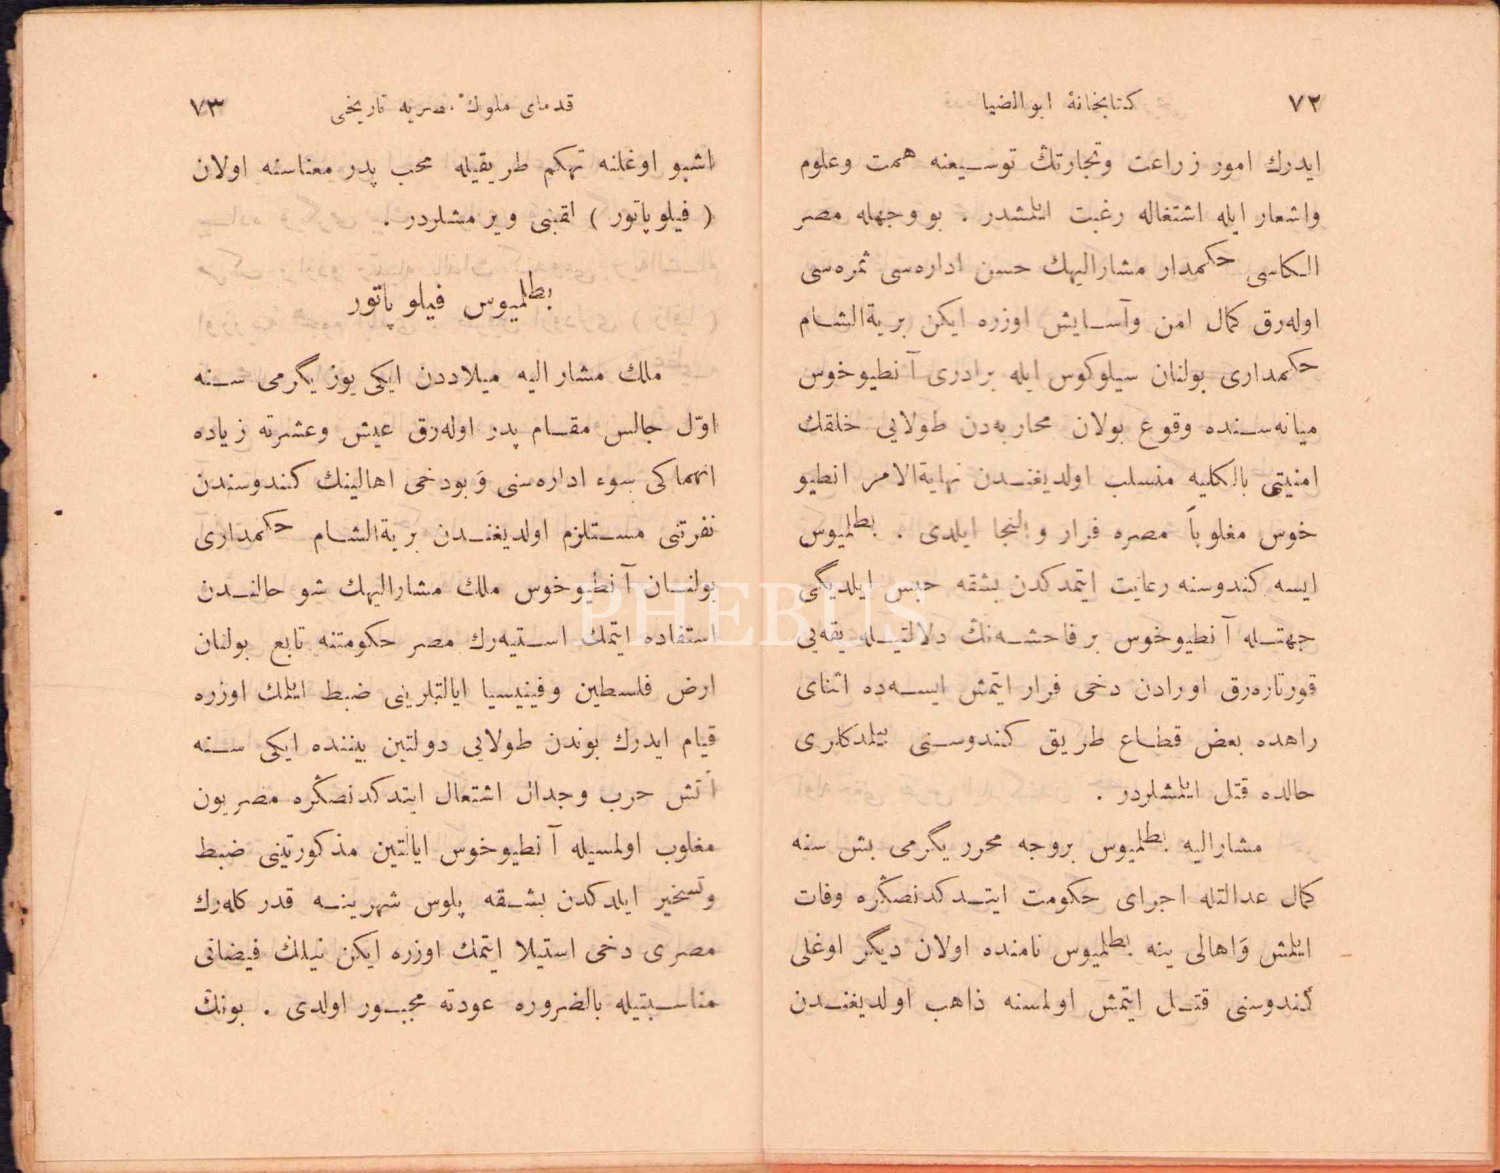 ٧٢ كتابخانهٔ ابوالضيا
ايدرك امور زراعت وتجارتڭ توسيعنه همت وعلوم
واشعار ايله اشتغاله رغبت ايلمشدر . بو وجهله مصر
الكاسى حكمدار مشاراليهك حسن اداره‌سى ثمره‌سى
اوله‌رق كمال امن وآسايش اوزره ايكن برية‌الشام
حكمدارى بولنان سيلوكوس ايله برادرى آنطيوخوس
ميانه‌سنده وقوع بولان محاربه‌دن طولايى خلقك
امنيتى بالكليه منسلب اولديغندن نهاية‌الامر انطيو
خوس مغلوباً مصره فرار و التجا ايلدى . بطلميوس
ايسه كندوسنه رعايت ايتمدكدن بشقه حبس ايلديگى
جهتله آنطيوخوس بر فاحشه‌نڭ دلالتيله يقه‌يى
قورتاره‌رق اورادن دخى فرار ايتمش ايسه‌ده اثناى
راهده بعض قطاع طريق كندوسنى بيلمدكلرى
حالده قتل ايلمشلردر .
مشاراليه بطلميوس بروجه محرر يگرمى بش سنه
كمال عدالتله اجراى حكومت ايتدكدنصڭره وفات
ايلمش وَاهالى ينه بطلميوس نامنده اولان ديگر اوغلى
كندوسنى قتل ايتمش اولمسنه ذاهب اولديغندن
قدماى ملوك مصريه تاريخى ٧٣
اشبو اوغلنه تهكم طريقيله محب پدر معناسنه اولان
( فيلوپاتور ) لقبنى ويرمشلردر .
بطلميوس فيلوپاتور
ملك مشار اليه ميلاددن ايكى يوز يگرمى سنه
اوّل جالس مقام پدر اوله‌رق عيش وعشرته زياده
انهماكى سوء اداره‌سنى وَبودخى اهالينك كندوسندن
نفرتنى مستلزم اولديغندن برية‌الشام حكمدارى
بولنان آنطيوخوس ملك مشاراليهك شو حالندن
استفاده ايتمك استيه‌رك مصر حكومتنه تابع بولنان
ارض فلسطين وفينيسيا ايالتلرينى ضبط ايلمك اوزره
قيام ايدرك بوندن طولايى دولتين بيننده ايكى سنه
آتش حرب وجدال اشتعال ايتدكدنصڭره مصريون
مغلوب اولمسيله آنطيوخوس ايالتين مذكورتينى ضبط
وتسخير ايلدكدن بشقه پلوس شهرينه قدر كله‌رك
مصرى دخى استيلا ايتمك اوزره ايكن نيلڭ فيضانى
مناسبتيله بالضروره عودته مجبور اولدى . بونڭ
PHEBUS